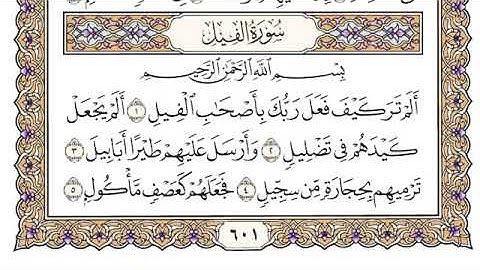 سُورَةُ الفِيلِ
بِسْمِ اللَّهِ الرَّحْمَٰنِ الرَّحِيمِ
أَلَمْ تَرَ كَيْفَ فَعَلَ رَبُّكَ بِأَصْحَٰبِ الْفِيلِ ١ أَلَمْ يَجْعَلْ
كَيْدَهُمْ فِي تَضْلِيلٍ ٢ وَأَرْسَلَ عَلَيْهِمْ طَيْرًا أَبَابِيلَ ٣
تَرْمِيهِم بِحِجَارَةٍ مِّن سِجِّيلٍ ٤ فَجَعَلَهُمْ كَعَصْفٍ مَّأْكُولٍ ٥
٦٠١